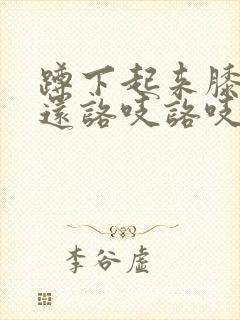 蹲下起来膝
還咯吱咯吱
李谷虛